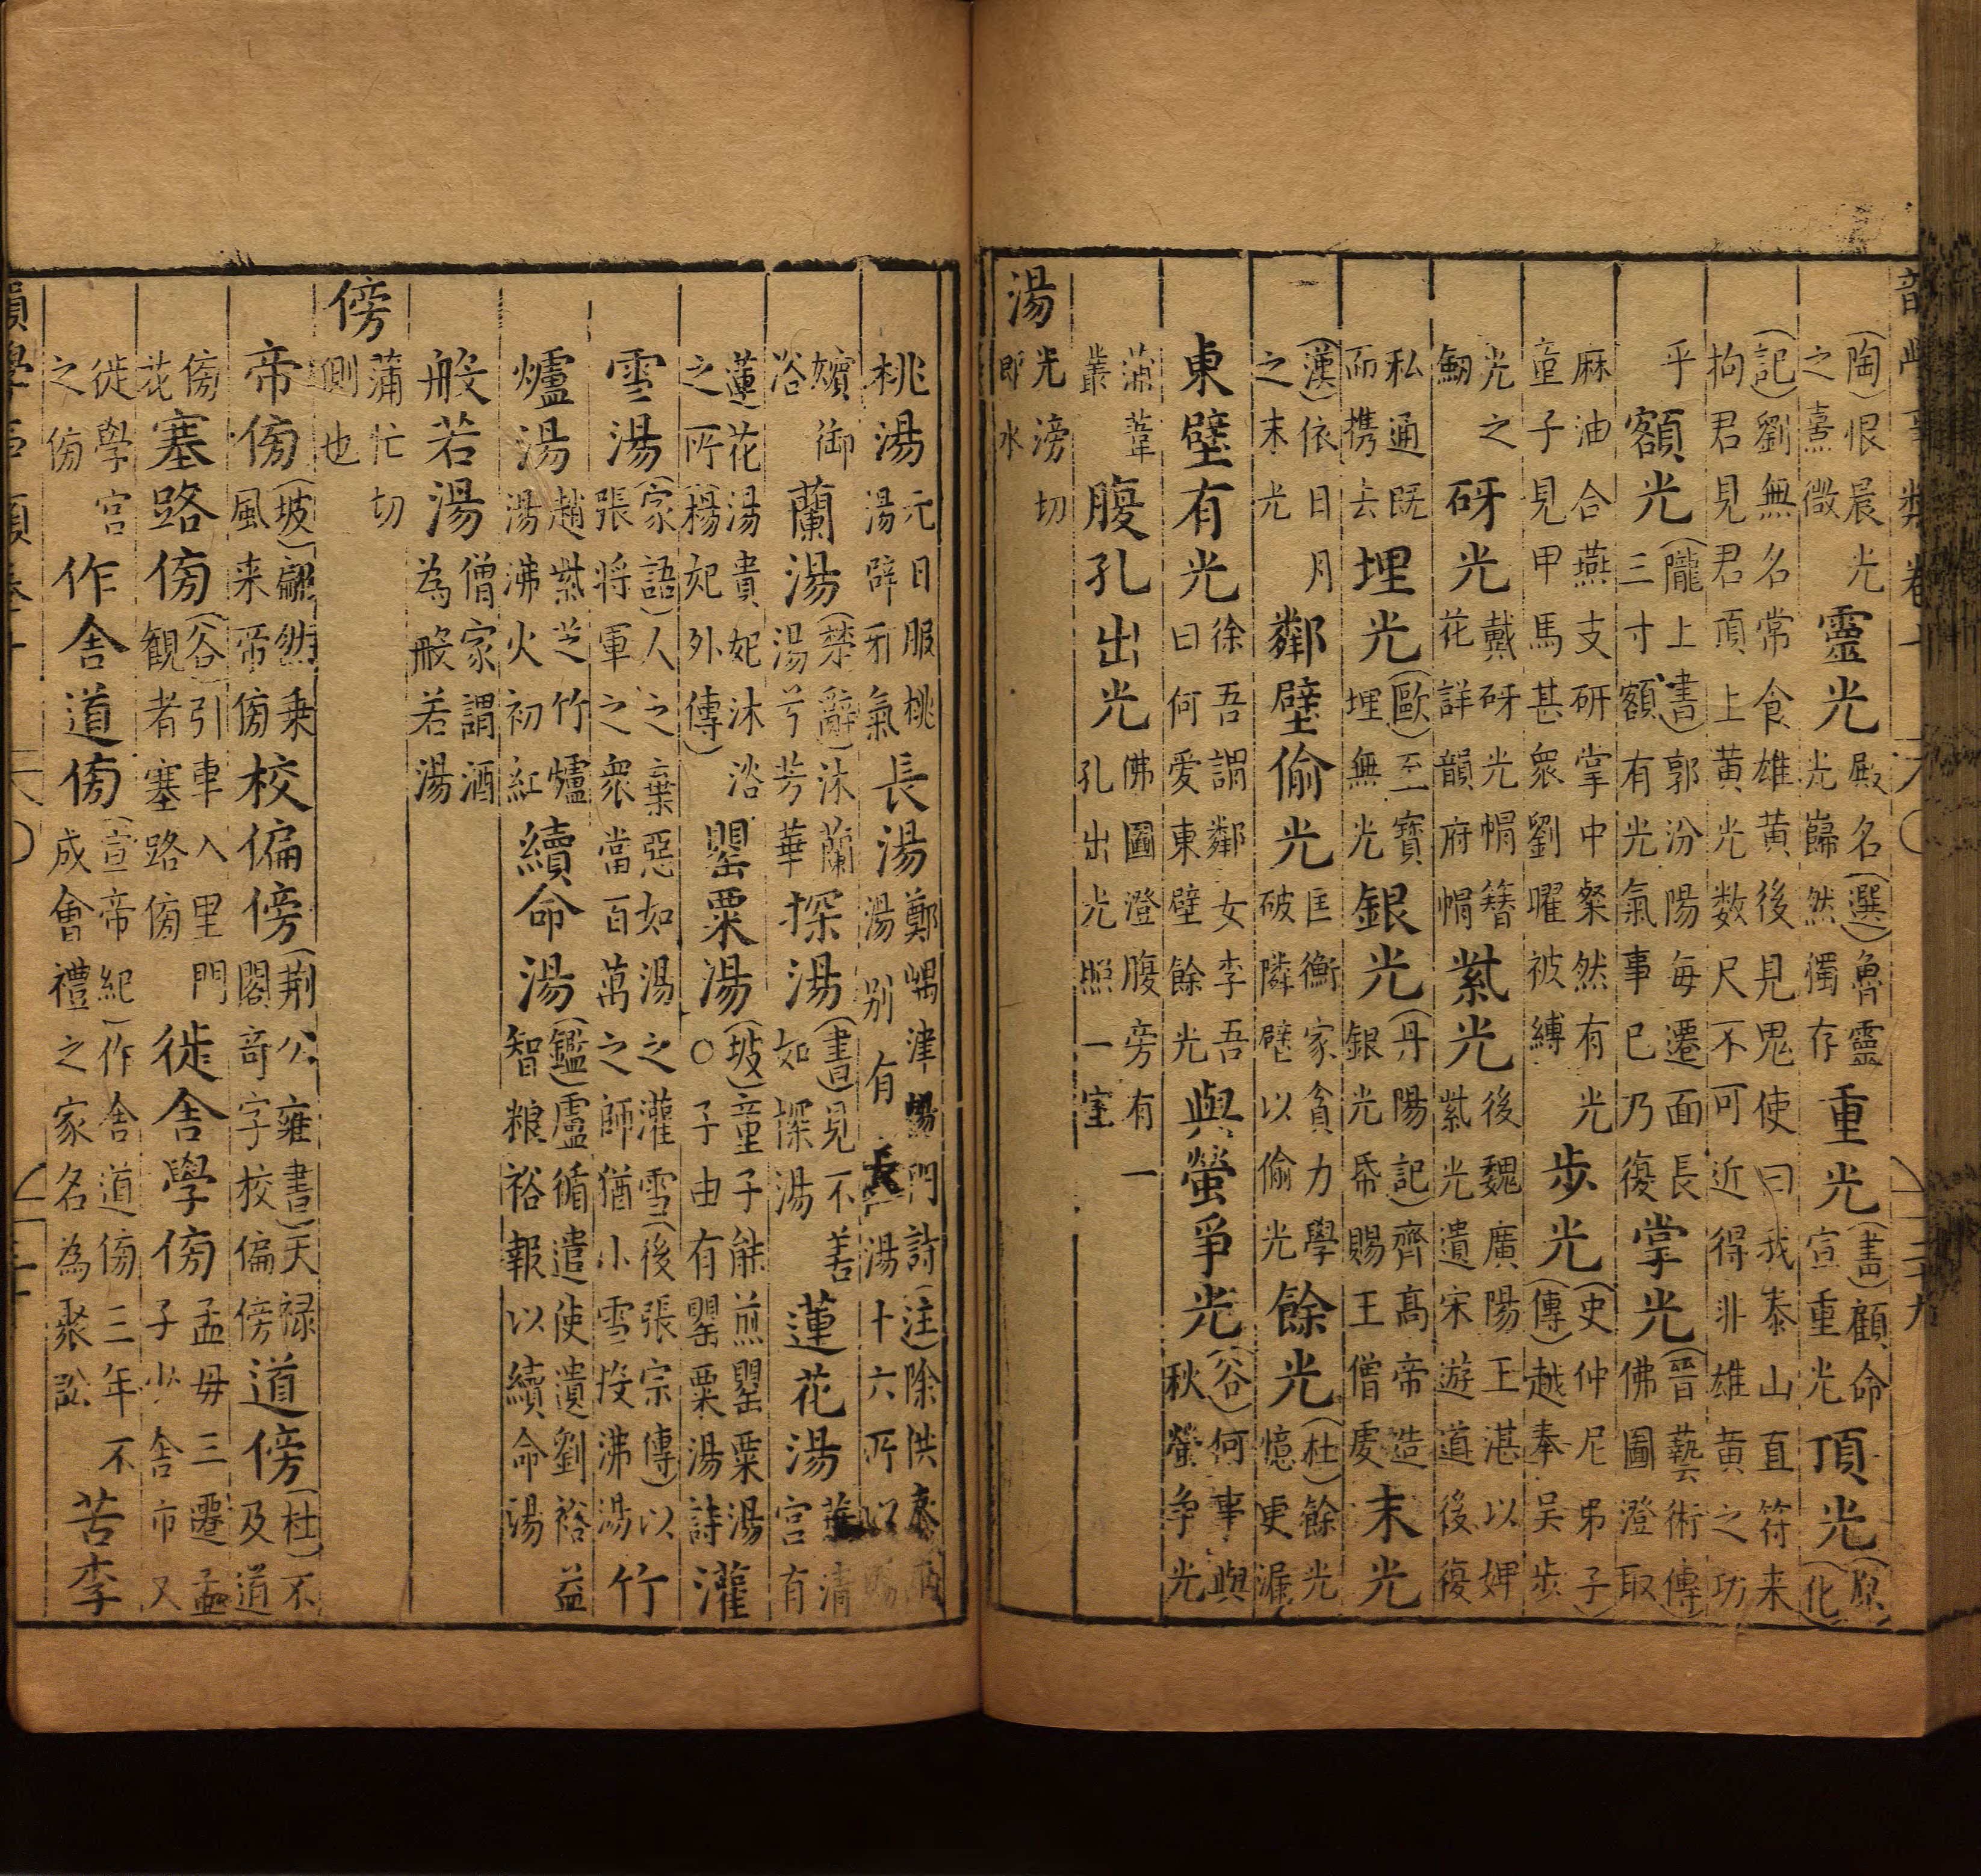 (陶)恨晨光之熹微靈光殿名(選)魯靈光巋然獨存重光(書)顧命宣重光頂光(原化
(記)劉無名常食雄黄後見鬼使曰我泰山直符来拘君見君頂上黄光数尺不可近得非雄黄之功
乎額光(隴上書)郭汾陽毎遷面長三寸額有光氣事已乃復掌光(晉藝術傳)佛圖澄取
麻油合燕支研掌中粲然有光童子見甲馬甚衆劉曜被縛步光(史仲尼弟子)(傳)越奉吳步
光之劒砑光戴砑光帽簪花詳韻府帽紫光後魏廣陽王湛以婢紫光遺宋遊道後復
私通既而携去埋光(歐)至寶埋無光銀光(丹陽記)齊髙帝造銀光帋賜王僧虔末光
(漢)依日月之末光鄰壁偷光匡衡家貪力學破隣壁以偷光餘光(杜)餘光憶更漏
東壁有光徐吾謂鄰女李吾曰何愛東壁餘光與螢爭光(谷)何事與秋螢争光
蒲葦叢腹孔出光佛圖澄腹旁有一孔出光照一室
湯光滂切即水
桃湯元日服桃湯辟邪氣長湯鄭嵎津陽門詩(注)除供奉兩湯别有長湯十六所以賜
嬪御浴蘭湯(楚辭)沐蘭湯兮芳華探湯(書)見不善如探湯蓮花湯華清宫有
蓮花湯貴妃沐浴之所(楊妃外傳)罌粟湯(坡)童子能煎罌粟湯○子由有罌粟湯詩灌
雪湯(家語)人之棄惡如湯之灌雪(後張宗傳)以張将軍之衆當百萬之師猶小雪投沸湯竹
爐湯趙紫芝竹爐湯沸火初紅續命湯(鑑)盧循遣使遺劉裕益智粮裕報以續命湯
般若湯僧家謂酒為般若湯
傍蒲忙切側也
帝傍(坡)翩然乗風来帝傍校偏傍(荆公雍書)天禄閣竒字校偏傍道傍(杜)不及道
傍花塞路傍(谷)引車入里門観者塞路傍徙舍學傍孟毋三遷孟子少舍市又
徙學宫之傍作舍道傍(宣帝紀)作舍道傍三年不成會禮之家名為聚訟苦李